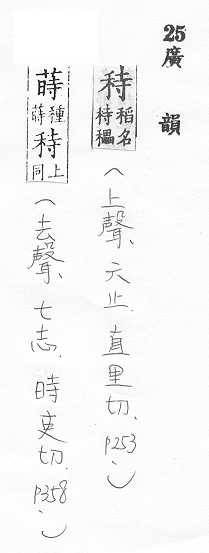 25廣韻
秲稻名秲
(上聲、六止、直里切、P253。)
蒔種蒔秲上同
(去聲、七志、時吏切、P358。)